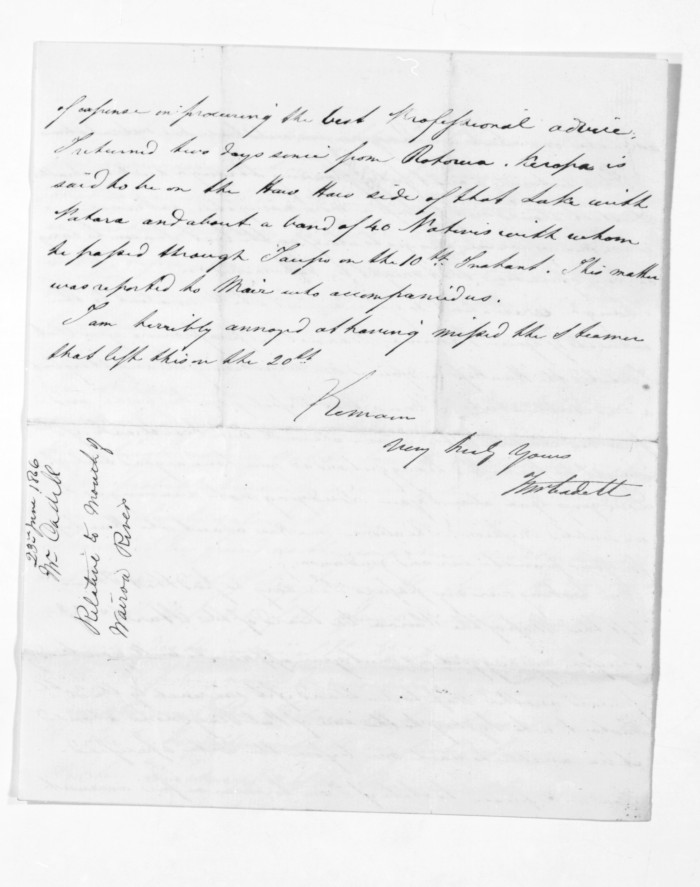 of expense in procuring the best Professional advice.
I returned two days since from Rotorua. Keropa is
said to be on the Hau Hau side of that Lake with
Patara and about a band of 40 Natives with whom
he passed through Taupo on the 10th Instant. This matter
was reported to Mair who accompanied us.
I am terribly annoyed at having missed the Steamer
that left this on the 20th
Remain
Very truly Yours
Cadell
23rd June 1866
Mr Cadell
Relative to Mouth of
Wairoa River